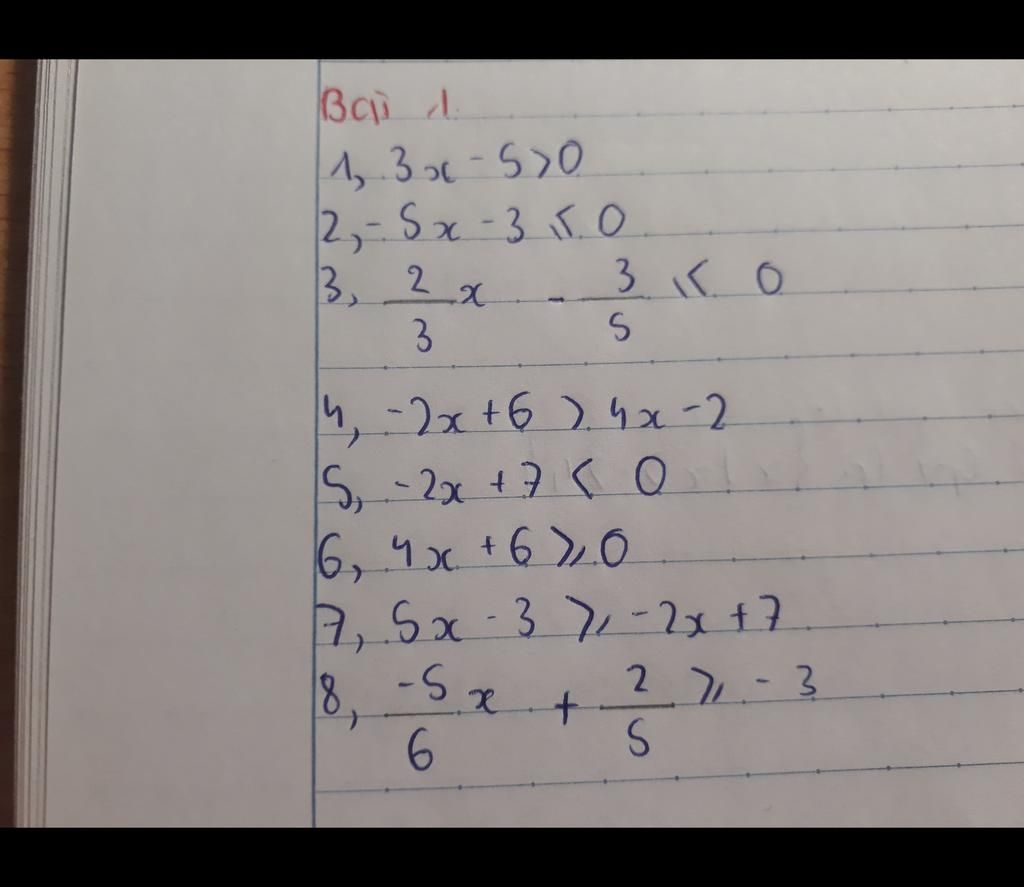 Bài 1.
1, 3x - 5 > 0
2, -5x - 3 ≤ 0
3, 2/3 x - 3/5 ≤ 0
4, -2x + 6 > 4x - 2
5, -2x + 7 < 0
6, 4x + 6 ≥ 0
7, 5x - 3 ≥ -2x + 7
8, -5/6 x + 2/5 ≥ -3